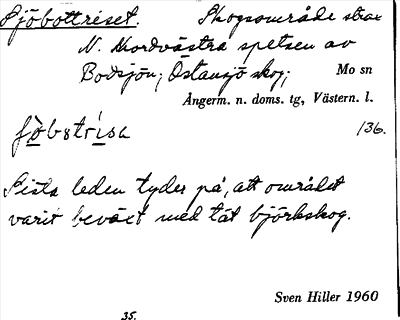 Sjöbottriset. Skogsområde strax
N. Nordvästra spetsen av
Bodsjön; Östansjö skog; Mo sn
Ångerm. n. doms. tg, Västern. l.
136.
Sista leden tyder på, att området
varit beväxt med tät björkskog.
Sven Hiller 1960
35.